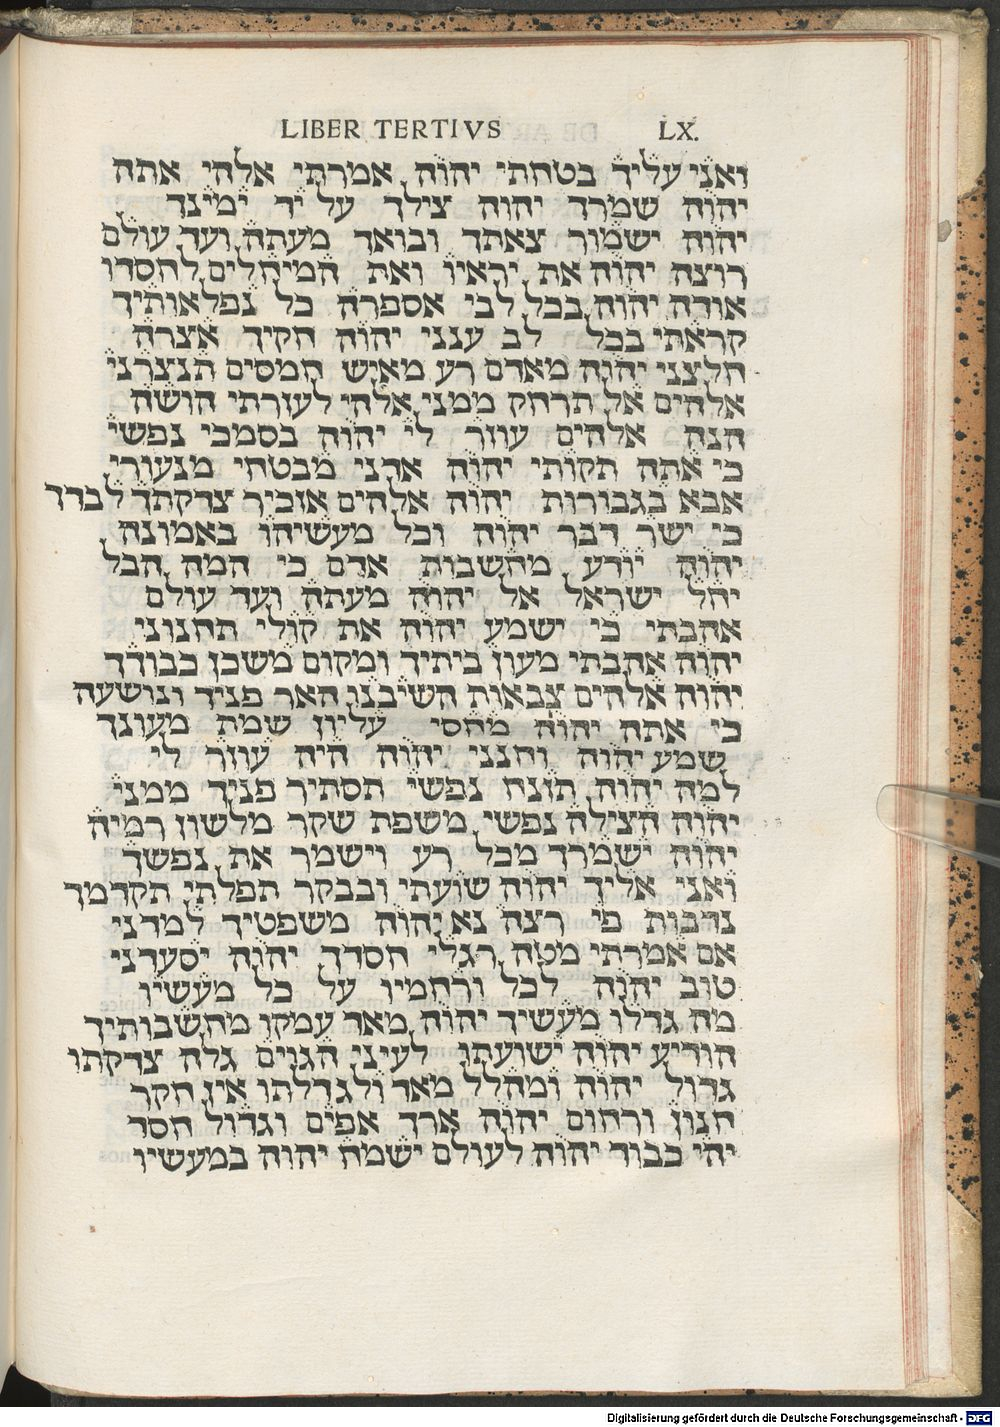 LIBER TERTIVS LX.
ואני עליך בטחתי יהוה אמרתי אלהי אתה
יהוה שמרך יהוה צילך על יד ימינך
יהוה ישמור צאתך ובואך מעתה ועד עולם
רוצה יהוה את יראיו ואת המיחלים לחסדו
אודה יהוה בכל לבי אספרה כל נפלאותיך
קראתי בכל לב ענני יהוה חקיך אצרה
חלצני יהוה מאדם רע מאיש חמסים תנצרני
אלהים אל תרחק ממני אלהי לעזרתי חושה
הנה אלהים עוזר לי יהוה בסמכי נפשי
כי אתה תקותי יהוה אדני מבטחי מנעורי
אבא בגבורות יהוה אלהים אזכיר צדקתך לבדך
כי ישר דבר יהוה וכל מעשיהו באמונה
יהוה יודע מחשבות אדם כי המה הבל
יחל ישראל אל יהוה מעתה ועד עולם
אהבתי כי ישמע יהוה את קולי תחנוני
יהוה אהבתי מעון ביתיך ומקום משכן כבודך
יהוה אלהים צבאות השיבנו האר פניך ונושעה
כי אתה יהוה מחסי עליון שמת מעונך
שמע יהוה וחנני יהוה היה עוזר לי
למה יהוה תזנח נפשי תסתיר פניך ממני
יהוה הצילה נפשי משפת שקר מלשון רמיה
יהוה ישמרך מכל רע וישמר את נפשך
ואני אליך יהוה שועתי ובבקר תפלתי תקדמך
נדבות פי רצה נא יהוה משפטיך למדני
אם אמרתי מטה רגלי חסדך יהוה יסערני
טוב יהוה לכל ורחמיו על כל מעשיו
מה גדלו מעשיך יהוה מאד עמקו מחשבותיך
הודיע יהוה ישועתו לעיני הגוים גלה צדקתו
גדול יהוה ומהלל מאד ולגדלתו אין חקר
חנון ורחום יהוה ארך אפים וגדול חסד
יהי כבוד יהוה לעולם ישמח יהוה במעשיו
Digitalisierung gefördert durch die Deutsche Forschungsgemeinschaft - DFG